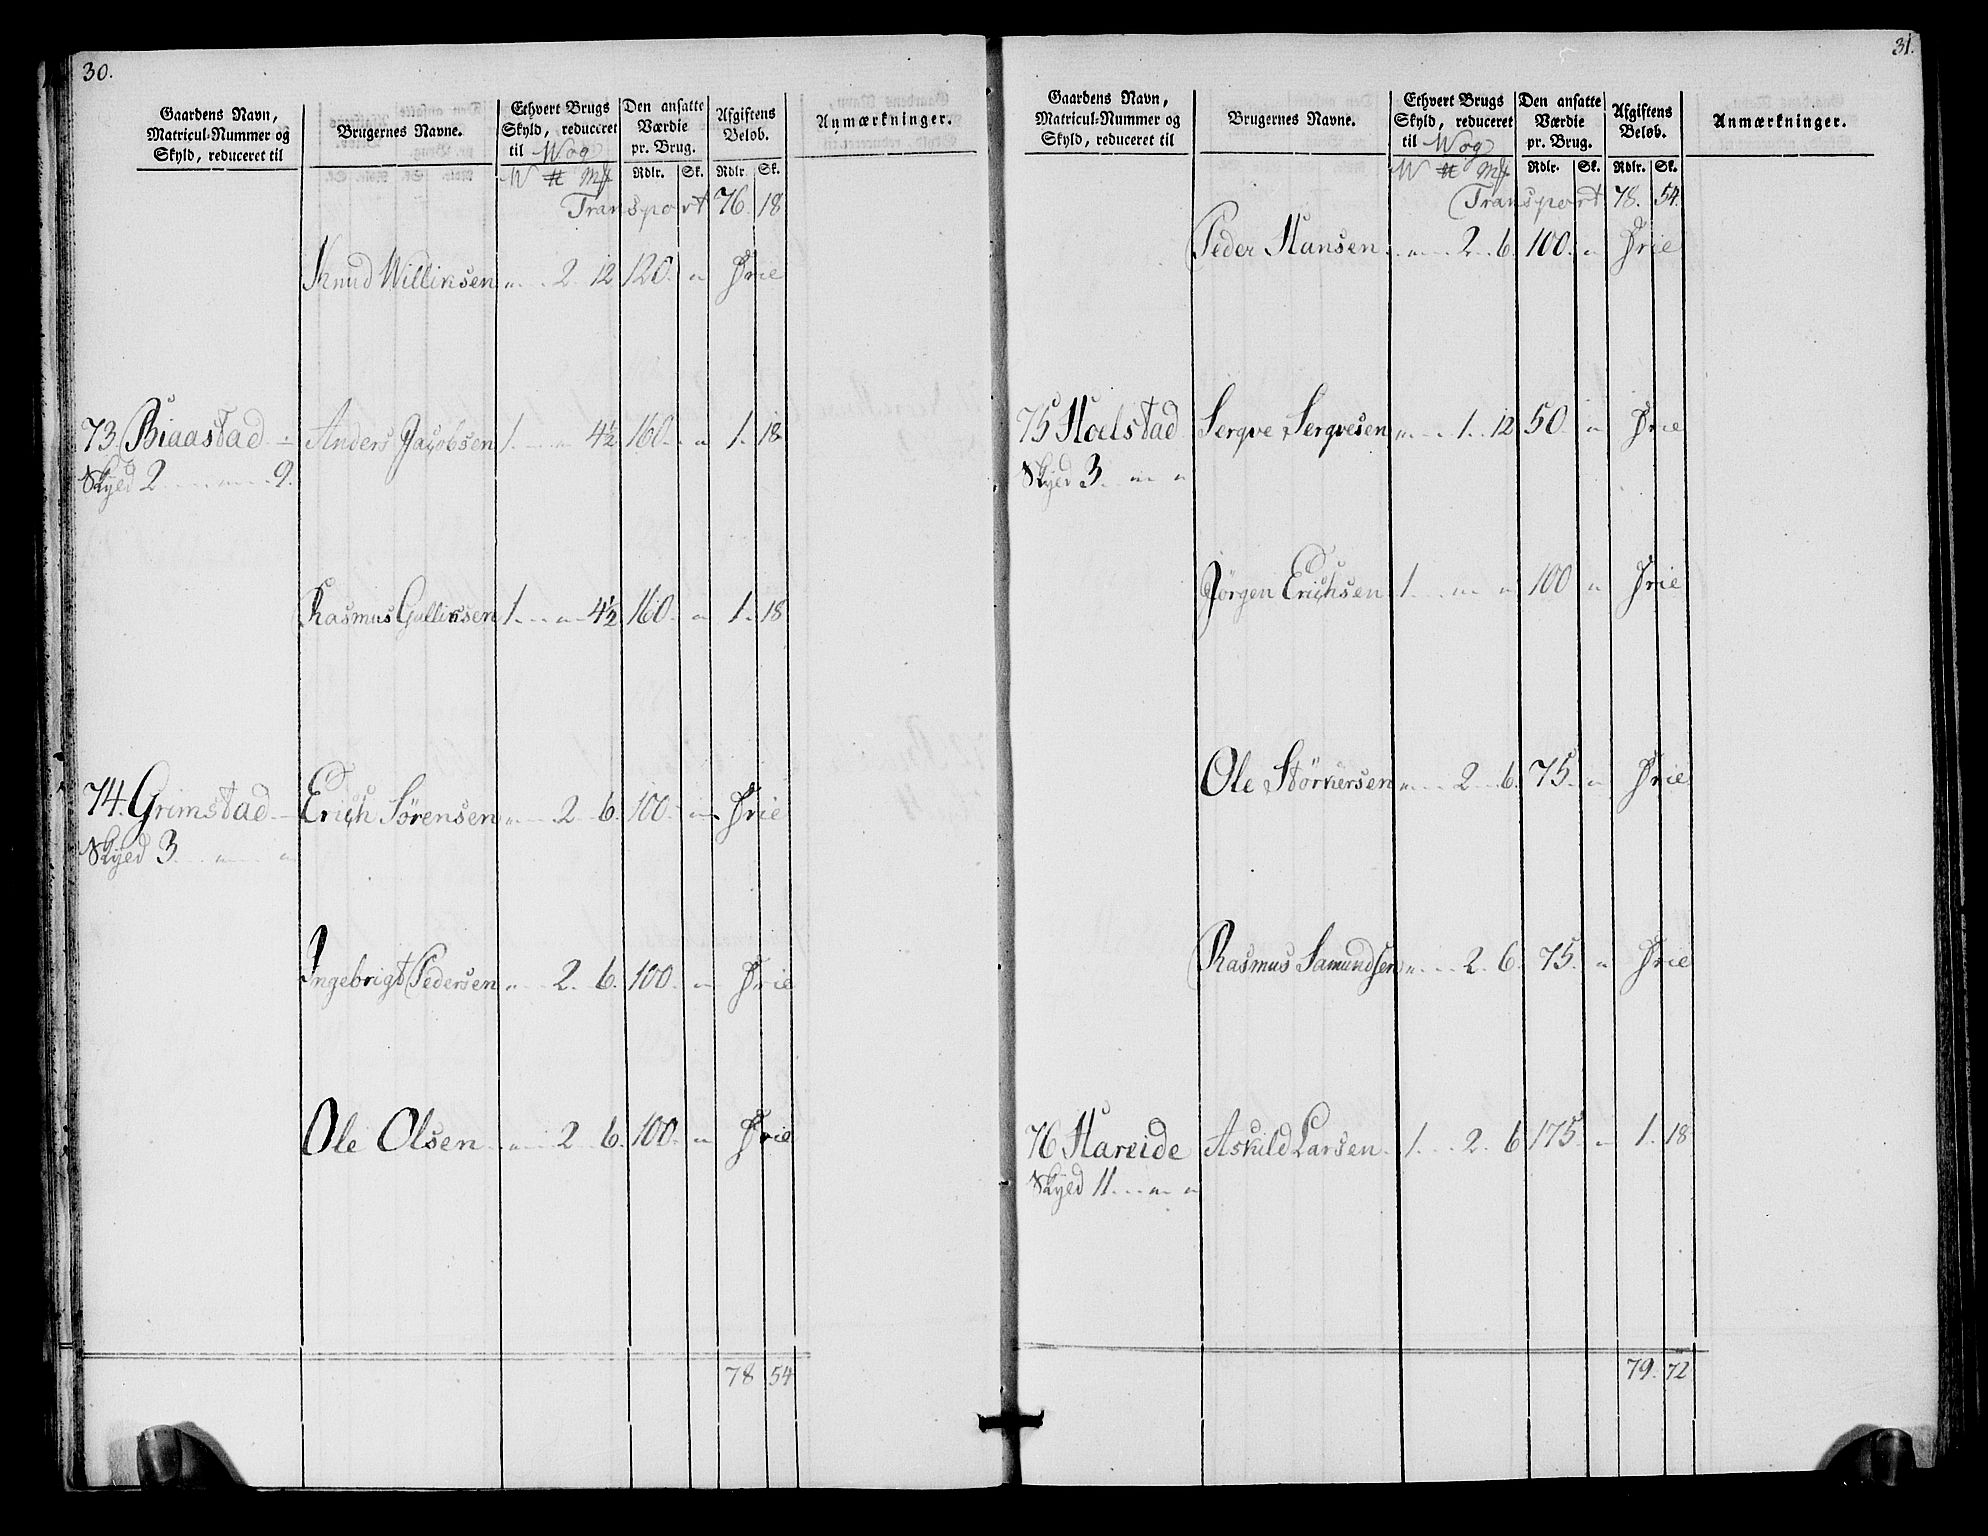 30.
Gaardens Navn, Matricul-Nummer og Skyld, reduceret til
Brugernes Navne.
Ethvert Brugs Skyld, reduceret til Wog
Den ansatte Værdie pr. Brug.
Afgiftens Beløb.
Anmærkninger.
W # Mk Rdlr. Sk. Rdlr. Sk.
Transport 76. 18
Knud Williksen " 2. 12 120. " Frie
73. Biaastad Anders Jacobsen 1. " 4½ 160. " 1. 18
Skyld 2 " 9.
Rasmus Gulliksen 1. " 4½ 160. " 1. 18
74. Grimstad Erich Sörensen " 2. 6. 100. " Frie
Skyld 3 " "
Ingebrigt Pedersen " 2. 6. 100. " Frie
Ole Olsen " 2. 6. 100. " Frie
78 54
31.
Gaardens Navn, Matricul-Nummer og Skyld, reduceret til
Brugernes Navne.
Ethvert Brugs Skyld, reduceret til Wog
Den ansatte Værdie pr. Brug.
Afgiftens Beløb.
Anmærkninger.
W # Mk Rdlr. Sk. Rdlr. Sk.
Transport 78. 54.
Peder Hansen " 2. 6. 100. " Frie
75 Hoelstad Serqve Serqvesen " 1. 12 50. " Frie
Skyld 3. " "
Jörgen Erichsen 1. " " 100 " Frie
Ole Störkersen " 2. 6. 75. " Frie
Rasmus Samundsen " 2. 6. 75. " Frie
76 Hareide Askild Larsen 1. 2. 6 175. " 1. 18
Skyld 11. " "
79. 72